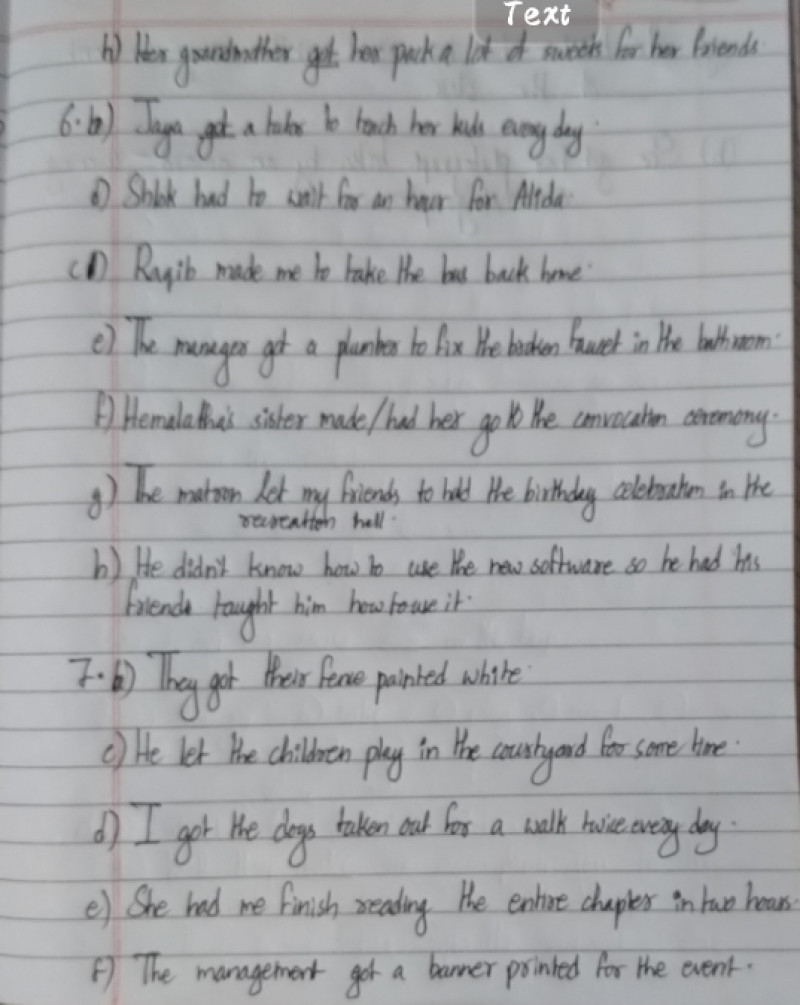 Text
h) Her grandmother got her pack a lot of sweets for her friends.
6. b) Jaya got a tutor to teach her kids every day.
d) Shlok had to wait for an hour for Alida.
c) Raqib made me to take the bus back home.
e) The manager got a plumber to fix the broken faucet in the bathroom.
f) Hemalatha's sister made/had her go to the convocation ceremony.
g) The matron let my friends to hold the birthday celebration in the
recreation hall.
h) He didn't know how to use the new software so he had his
friends taught him how to use it.
7. b) They got their fence painted white.
c) He let the children play in the courtyard for some time.
d) I got the dogs taken out for a walk twice every day.
e) She had me finish reading the entire chapter in two hours.
f) The management got a banner printed for the event.